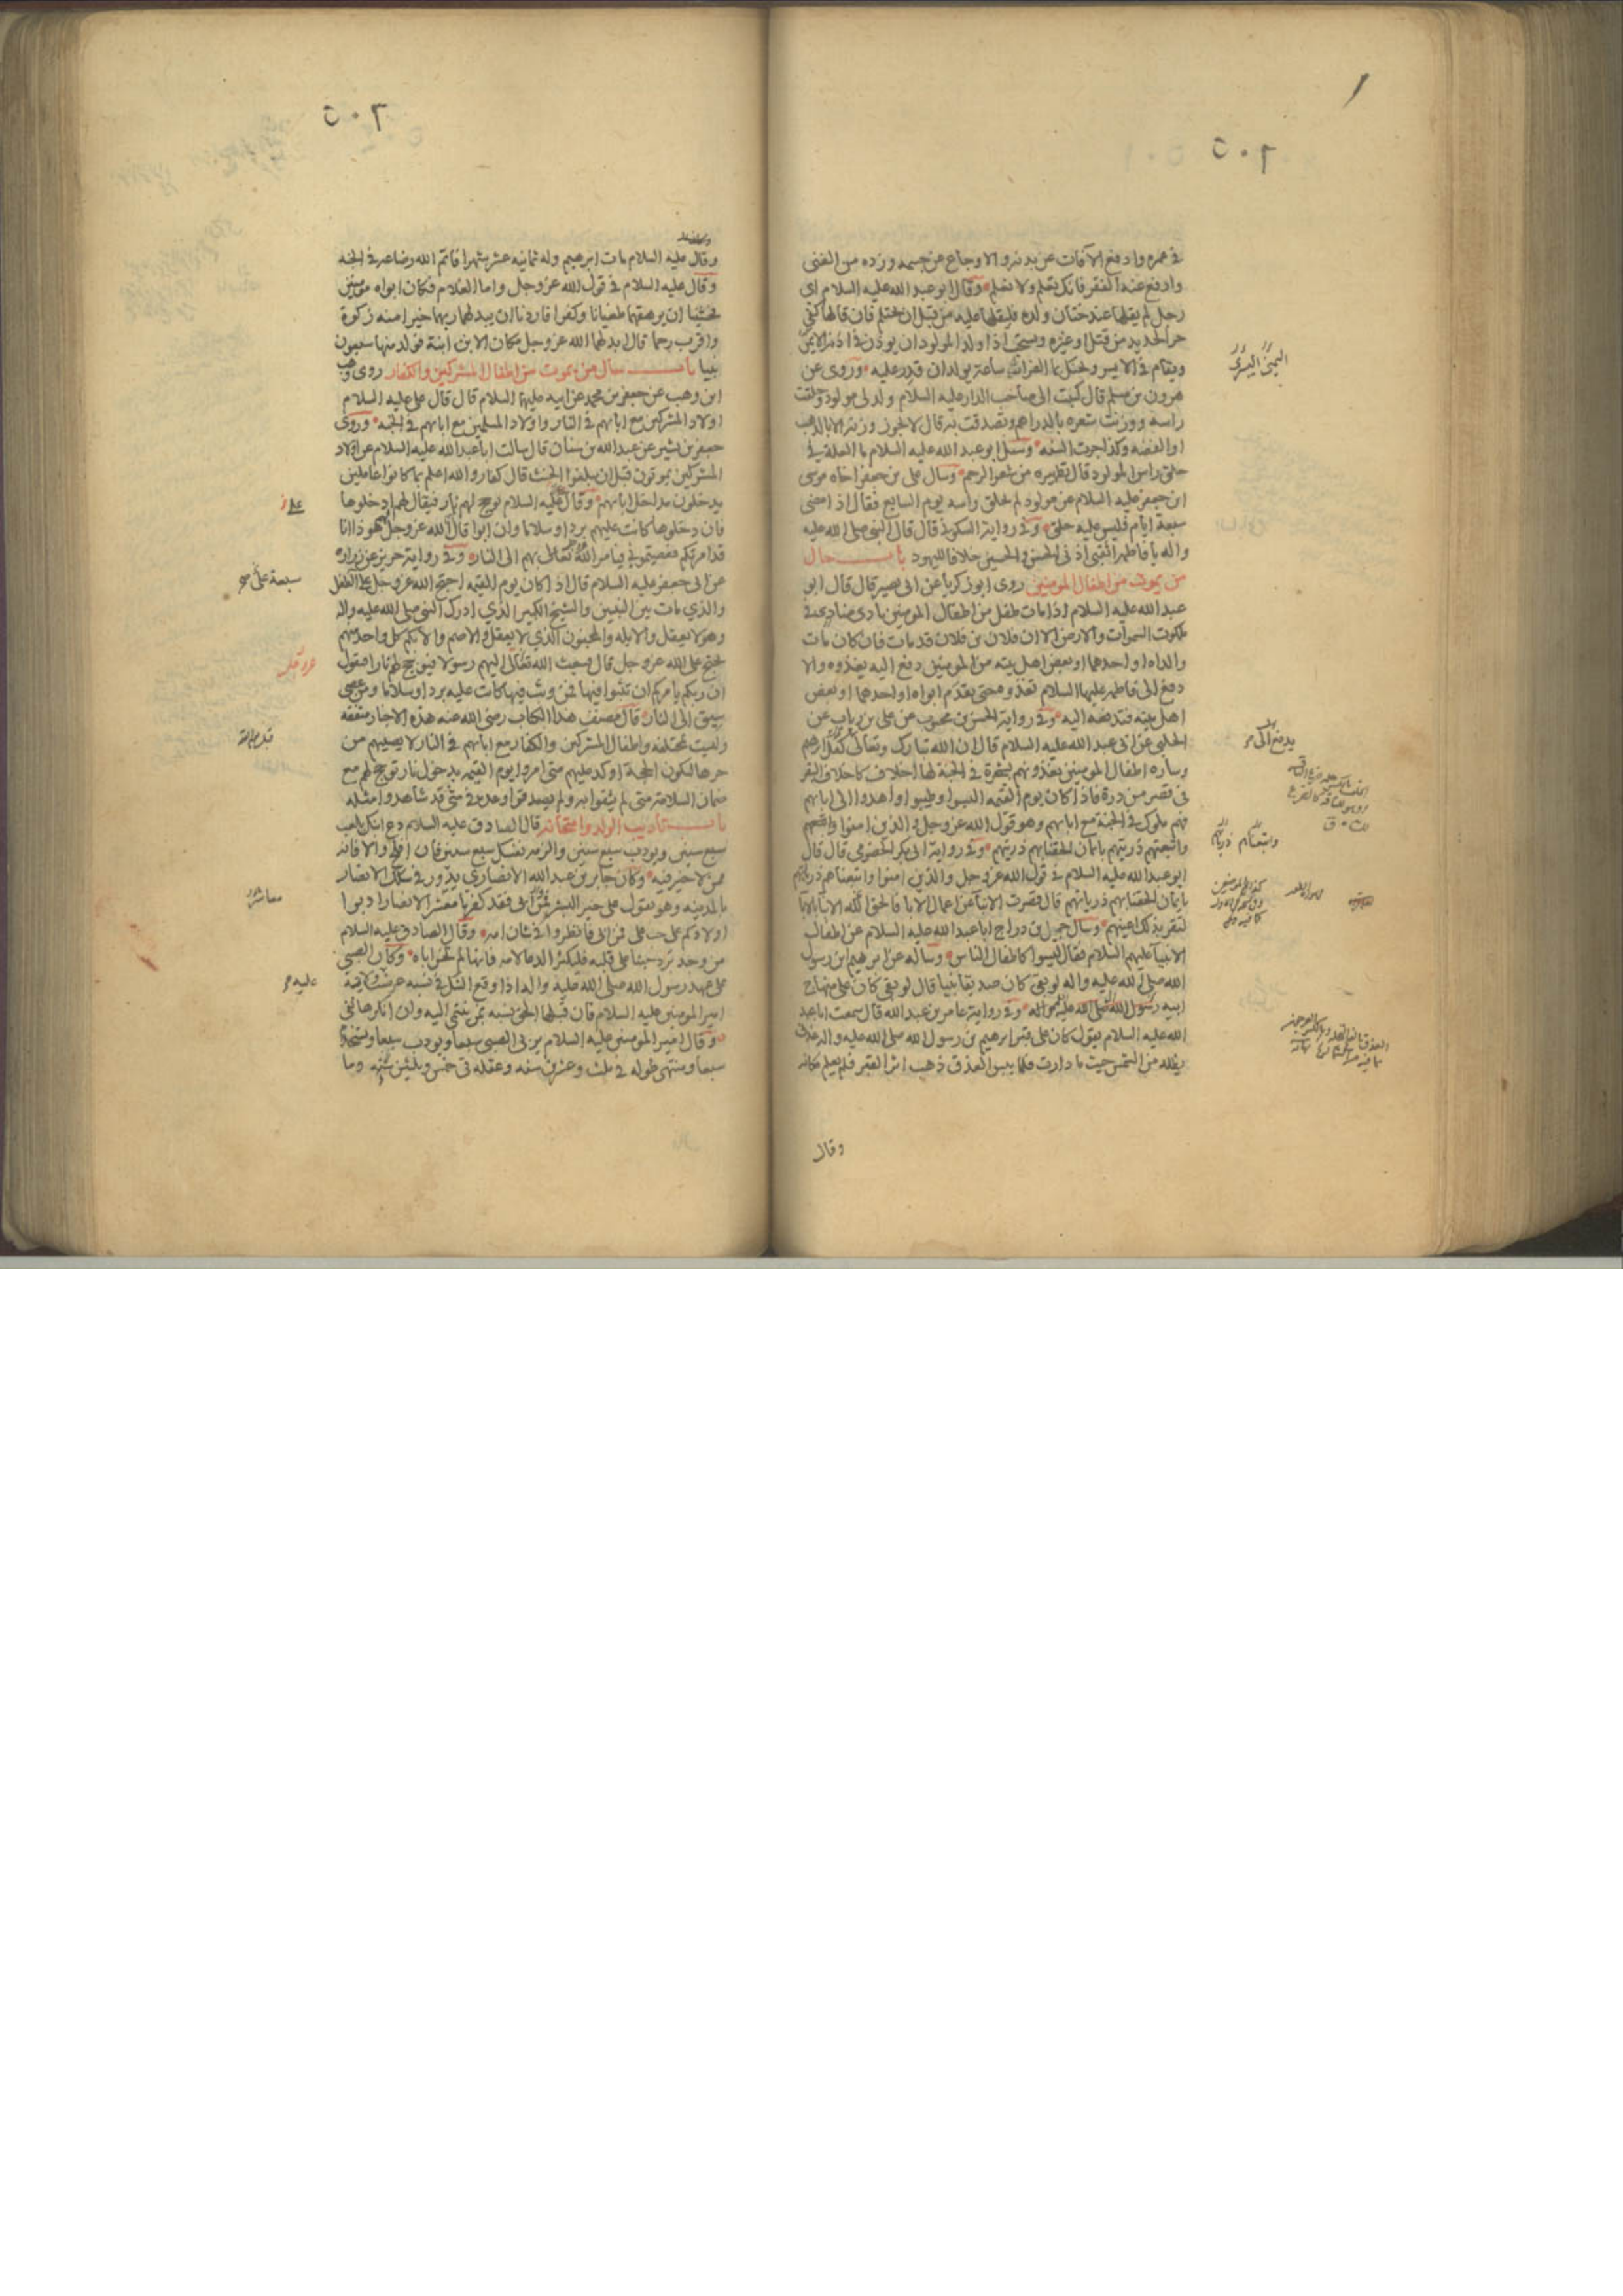 ٦٠٥
في عمره وادفع الآفات عن بدنه والاوجاع عن جسمه وزده من الغنى
وادفع عنه الفقر فانك تعلم ولا نعلم وقال ابو عبد الله عليه السلام اي
رجل لم يقلها عند ختان ولده فليقلها عليه من قبل ان يحتلم فان قالها كفي
حر الحديد من قتل او غيره ويستحب اذا ولد المولود ان يوذن في اذنه الايمن
ويقام في الايسر ويحنك بماء الفرات ساعة يولد ان قدر عليه وروى عن
هرون بن مسلم قال كتبت الى صاحب الدار عليه السلام ولد لي مولود وحلقت
راسه ووزنت شعره بالدراهم وتصدقت به قال لا يجوز وزنه الا بالذهب
او الفضه وكذا جرت السنه وسئل ابو عبد الله عليه السلام ما العلة في
حلق راس المولود قال تطهيره من شعر الرحم وسال علي بن جعفر اخاه موسى
ابن جعفر عليه السلام عن مولود لم يحلق راسه يوم السابع فقال اذا مضى
سبعة ايام فليس عليه حلق وفي رواية السكوني قال قال النبي صلى الله عليه
واله يا فاطمه اثقبي اذني الحسن والحسين خلافا لليهود باب حال
من يموت من اطفال المومنين روى ابو زكريا عن ابي بصير قال قال ابو
عبد الله عليه السلام اذا مات طفل من اطفال المومنين نادى مناد في
ملكوت السموات والارض الا ان فلان بن فلان قد مات فان كان مات
والداه او احدهما او بعض اهل بيته من المومنين دفع اليه يغذوه والا
دفع الى فاطمه عليها السلام تغذوه حتى يقدم ابواه او احدهما او بعض
اهل بيته فتدفعه اليه وفي رواية الحسن بن محبوب عن علي بن رياب عن
الحلبي عن ابي عبد الله عليه السلام قال ان الله تبارك وتعالى كفل ابرهيم
وساره اطفال المومنين يغذونهم بشجرة في الجنة لها اخلاف كاخلاف البقر
في قصر من درة فاذا كان يوم القيمه البسوا وطيبوا واهدوا الى ابايهم
فهم ملوك في الجنة مع ابايهم وهو قول الله عز وجل والذين امنوا
واتبعتهم ذريتهم بايمان الحقنا بهم ذريتهم وفي رواية ابي بكر الحضرمي قال قال
ابو عبد الله عليه السلام في قول الله عز وجل والذين امنوا واتبعناهم ذرياتهم
بايمان الحقنا بهم ذرياتهم قال قصرت الابناء عن اعمال الابا فالحق الله الابنا بالابا
لتقر بذلك اعينهم وسال جميل بن دراج ابا عبد الله عليه السلام عن اطفال
الانبياء عليهم السلام فقال ليسوا كاطفال الناس وساله عن ابرهيم ابن رسول
الله صلى الله عليه واله لو بقي كان صديقا نبيا قال لو بقي كان على منهاج
ابيه رسول الله صلى الله عليه واله وفي رواية عامر بن عبد الله قال سمعت ابا عبد
الله عليه السلام يقول كان على قبر ابرهيم بن رسول الله صلى الله عليه واله عذق
يظله من الشمس حيث ما دارت فلما يبس العذق ذهب اثر القبر فلم يعلم مكانه
وقال
اليمنى اليسرى
واتبعناهم ذرياتهم
٦٠٥
وقال عليه السلام مات ابرهيم وله ثمانيه عشر شهرا فاتم الله رضاعه في الجنه
وقال عليه السلام في قول الله عز وجل واما الغلام فكان ابواه مومنين
فخشينا ان يرهقهما طغيانا وكفرا فاردنا ان يبدلهما ربهما خيرا منه زكوة
واقرب رحما قال ابدلهما الله عز وجل مكان الابن ابنة فولد منها سبعون
نبيا باب حال من يموت من اطفال المشركين والكفار روى وهب
ابن وهب عن جعفر بن محمد عن ابيه عليهما السلام قال قال علي عليه السلام
اولاد المشركين مع ابايهم في النار واولاد المسلمين مع ابايهم في الجنه وروى
جعفر بن بشير عن عبد الله بن سنان قال سالت ابا عبد الله عليه السلام عن اولاد
المشركين يموتون قبل ان يبلغوا الحنث قال كفار والله اعلم بما كانوا عاملين
يدخلون مداخل ابايهم وقال عليه السلام يوجج لهم نار فيقال لهم ادخلوها
فان دخلوها كانت عليهم بردا وسلاما وان ابوا قال الله عز وجل لهم هو ذا انا
قد امرتكم فعصيتموني فيامر الله تعالى بهم الى النار وفي رواية حريز عن زراره
عن ابي جعفر عليه السلام قال اذا كان يوم القيمه احتج الله عز وجل على الطفل
والذي مات بين النبيين والشيخ الكبير الذي ادرك النبي صلى الله عليه واله
وهو لا يعقل والابله والمجنون الذي لا يعقل والاصم والابكم كل واحد منهم
يحتج على الله عز وجل قال فيبعث الله تعالى اليهم رسولا فيوجج لهم نارا فيقول
ان ربكم يامركم ان تثبوا فيها فمن وثب فيها كانت عليه بردا وسلاما ومن عصى
سيق الى النار قال مصنف هذا الكتاب رضي الله عنه هذه الاخبار متفقه
وليست بمختلفه واطفال المشركين والكفار مع ابايهم في النار لا يصيبهم من
حرها لتكون الحجة اوكد عليهم متى امروا يوم القيمه بدخول نار توجج لهم مع
ضمان السلامة متى لم يثقوا به ولم يصدقوا وعده في شي قد شاهدوا مثله
باب تاديب الولد وامتحانه قال الصادق عليه السلام دع ابنك يلعب
سبع سنين ويودب سبع سنين والزمه نفسك سبع سنين فان افلح والا فانه
ممن لا خير فيه وكان جابر بن عبد الله الانصاري يدور في سكك الانصار
بالمدينه وهو يقول علي خير البشر فمن ابى فقد كفر يا معشر الانصار ادبوا
اولادكم على حب علي فمن ابى فانظروا في شان امه وقال الصادق عليه السلام
من وجد برد حبنا على قلبه فليكثر الدعا لامه فانها لم تخن اباه وكان الصبي
على عهد رسول الله صلى الله عليه واله اذا وقع الشك في نسبه عرضت ولاية
امير المومنين عليه السلام فان قبلها الحق نسبه بمن ينتمي اليه وان انكرها نفي
وقال امير المومنين عليه السلام يربى الصبي سبعا ويودب سبعا ويستخدم
سبعا ومنتهى طوله في ثلث وعشرين سنه وعقله في خمس وثلثين سنه وما